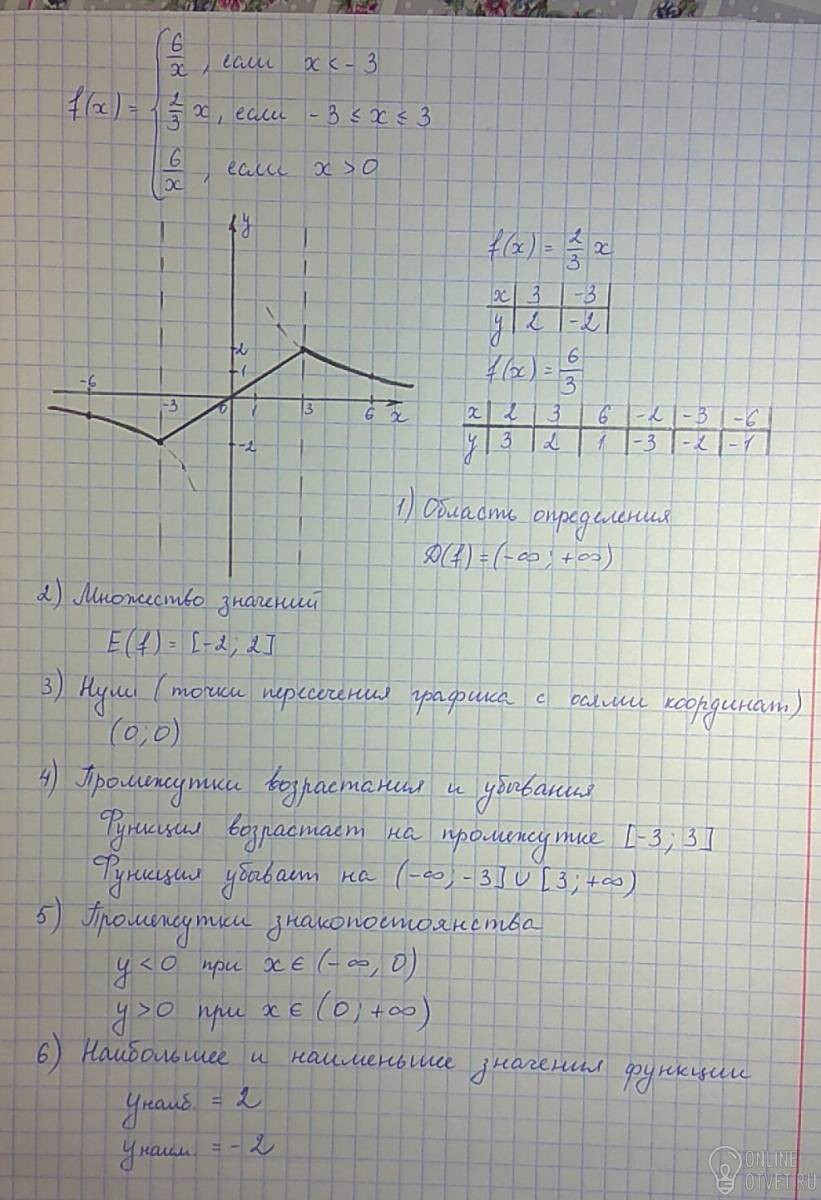 f(x) = { 6/x, если x < -3
2/3 x, если -3 ≤ x ≤ 3
6/x, если x > 0
y
f(x) = 2/3 x
x | 3 | -3
y | 2 | -2
f(x) = 6/3
x | 2 | 3 | 6 | -2 | -3 | -6
y | 3 | 2 | 1 | -3 | -2 | -1
2
1
-6 -3 0 1 3 6 x
-2
1) Область определения
D(f) = (-∞; +∞)
2) Множество значений
E(f) = [-2; 2]
3) Нули (точки пересечения графика с осями координат)
(0; 0)
4) Промежутки возрастания и убывания
Функция возрастает на промежутке [-3; 3]
Функция убывает на (-∞; -3] ∪ [3; +∞)
5) Промежутки знакопостоянства
y < 0 при x ∈ (-∞, 0)
y > 0 при x ∈ (0; +∞)
6) Наибольшее и наименьшее значения функции
y наиб. = 2
y наим. = -2
ONLINE
OTVET.RU